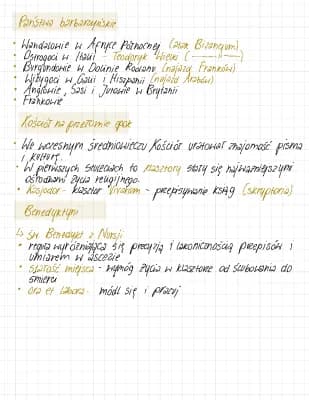 Państwa barbarzyńskie
• Wandalowie w Afryce Północnej (atak Bizancjum)
• Ostrogoci w Italii - Teodoryk Wielki (——||——)
• Burgundowie w Dolinie Rodanu (najazd Franków)
• Wizygoci w Galii i Hiszpanii (najazd Arabów)
• Anglowie, Sasi i Jutowie w Brytanii
• Frankowie
Kościół na przełomie epok
• We wczesnym średniowieczu Kościół uratował znajomość pisma
i kulturę.
• W pierwszych stuleciach to klasztory stały się najważniejszymi
ośrodkami życia religijnego.
• Kasjodor - klasztor Vivarium - przepisywanie ksiąg (skryptoria)
Benedyktyni
↳ św. Benedykt z Nursji
• reguła wyróżniająca się precyzją i lakonicznością przepisów i
umiarem w ascezie
• stałość miejsca - wymóg życia w klasztorze od ślubowania do
śmierci
• ora et labora - módl się i pracuj